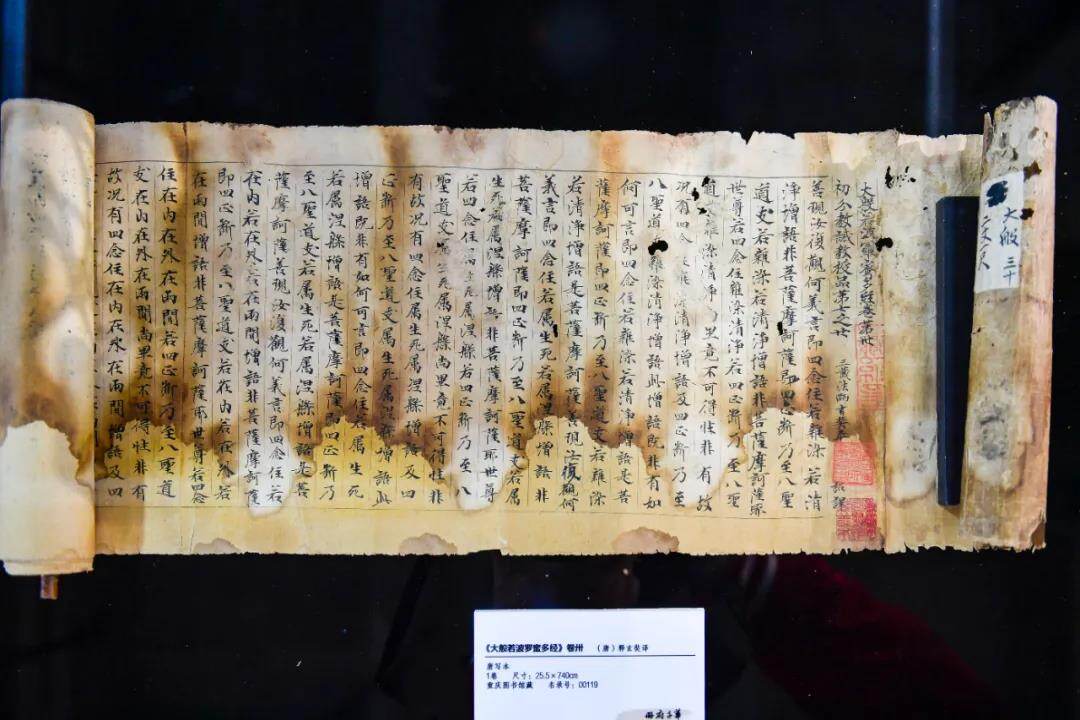 大般 三十
大般若波羅蜜多經卷第卅
初分教誡教授品第七之廿 三藏法師玄奘奉 詔譯
善現汝復觀何義言即四念住若雜染若清
淨增語非菩薩摩訶薩即四正斷乃至八聖
道支若雜染若清淨增語非菩薩摩訶薩耶
世尊若四念住雜染清淨若四正斷乃至八聖
道支雜染清淨畢竟不可得性非有故
況有四念住雜染清淨增語及四正斷乃至
八聖道支雜染清淨增語此增語既非有如
何可言即四念住若雜染若清淨增語是菩
薩摩訶薩即四正斷乃至八聖道支若雜染
若清淨增語是菩薩摩訶薩善現汝復觀何
義言即四念住若屬生死若屬涅槃增語非
菩薩摩訶薩即四正斷乃至八聖道支若屬
生死若屬涅槃增語非菩薩摩訶薩耶世尊
若四念住屬生死屬涅槃若四正斷乃至八
聖道支屬生死屬涅槃尚畢竟不可得性非
有故況有四念住屬生死屬涅槃增語及四
正斷乃至八聖道支屬生死屬涅槃增語此
增語既非有如何可言即四念住若屬生死
若屬涅槃增語是菩薩摩訶薩即四正斷乃
至八聖道支若屬生死若屬涅槃增語是菩
薩摩訶薩善現汝復觀何義言即四念住若
在內若在外若在兩間增語非菩薩摩訶薩
即四正斷乃至八聖道支若在內若在外若
在兩間增語非菩薩摩訶薩耶世尊若四念
住在內在外在兩間若四正斷乃至八聖道
支在內在外在兩間尚畢竟不可得性非有
故況有四念住在內在外在兩間增語及四
《大般若波罗蜜多经》卷卅 （唐）释玄奘译
唐写本
1卷 尺寸：25.5×740cm
重庆图书馆藏 名录号：00119